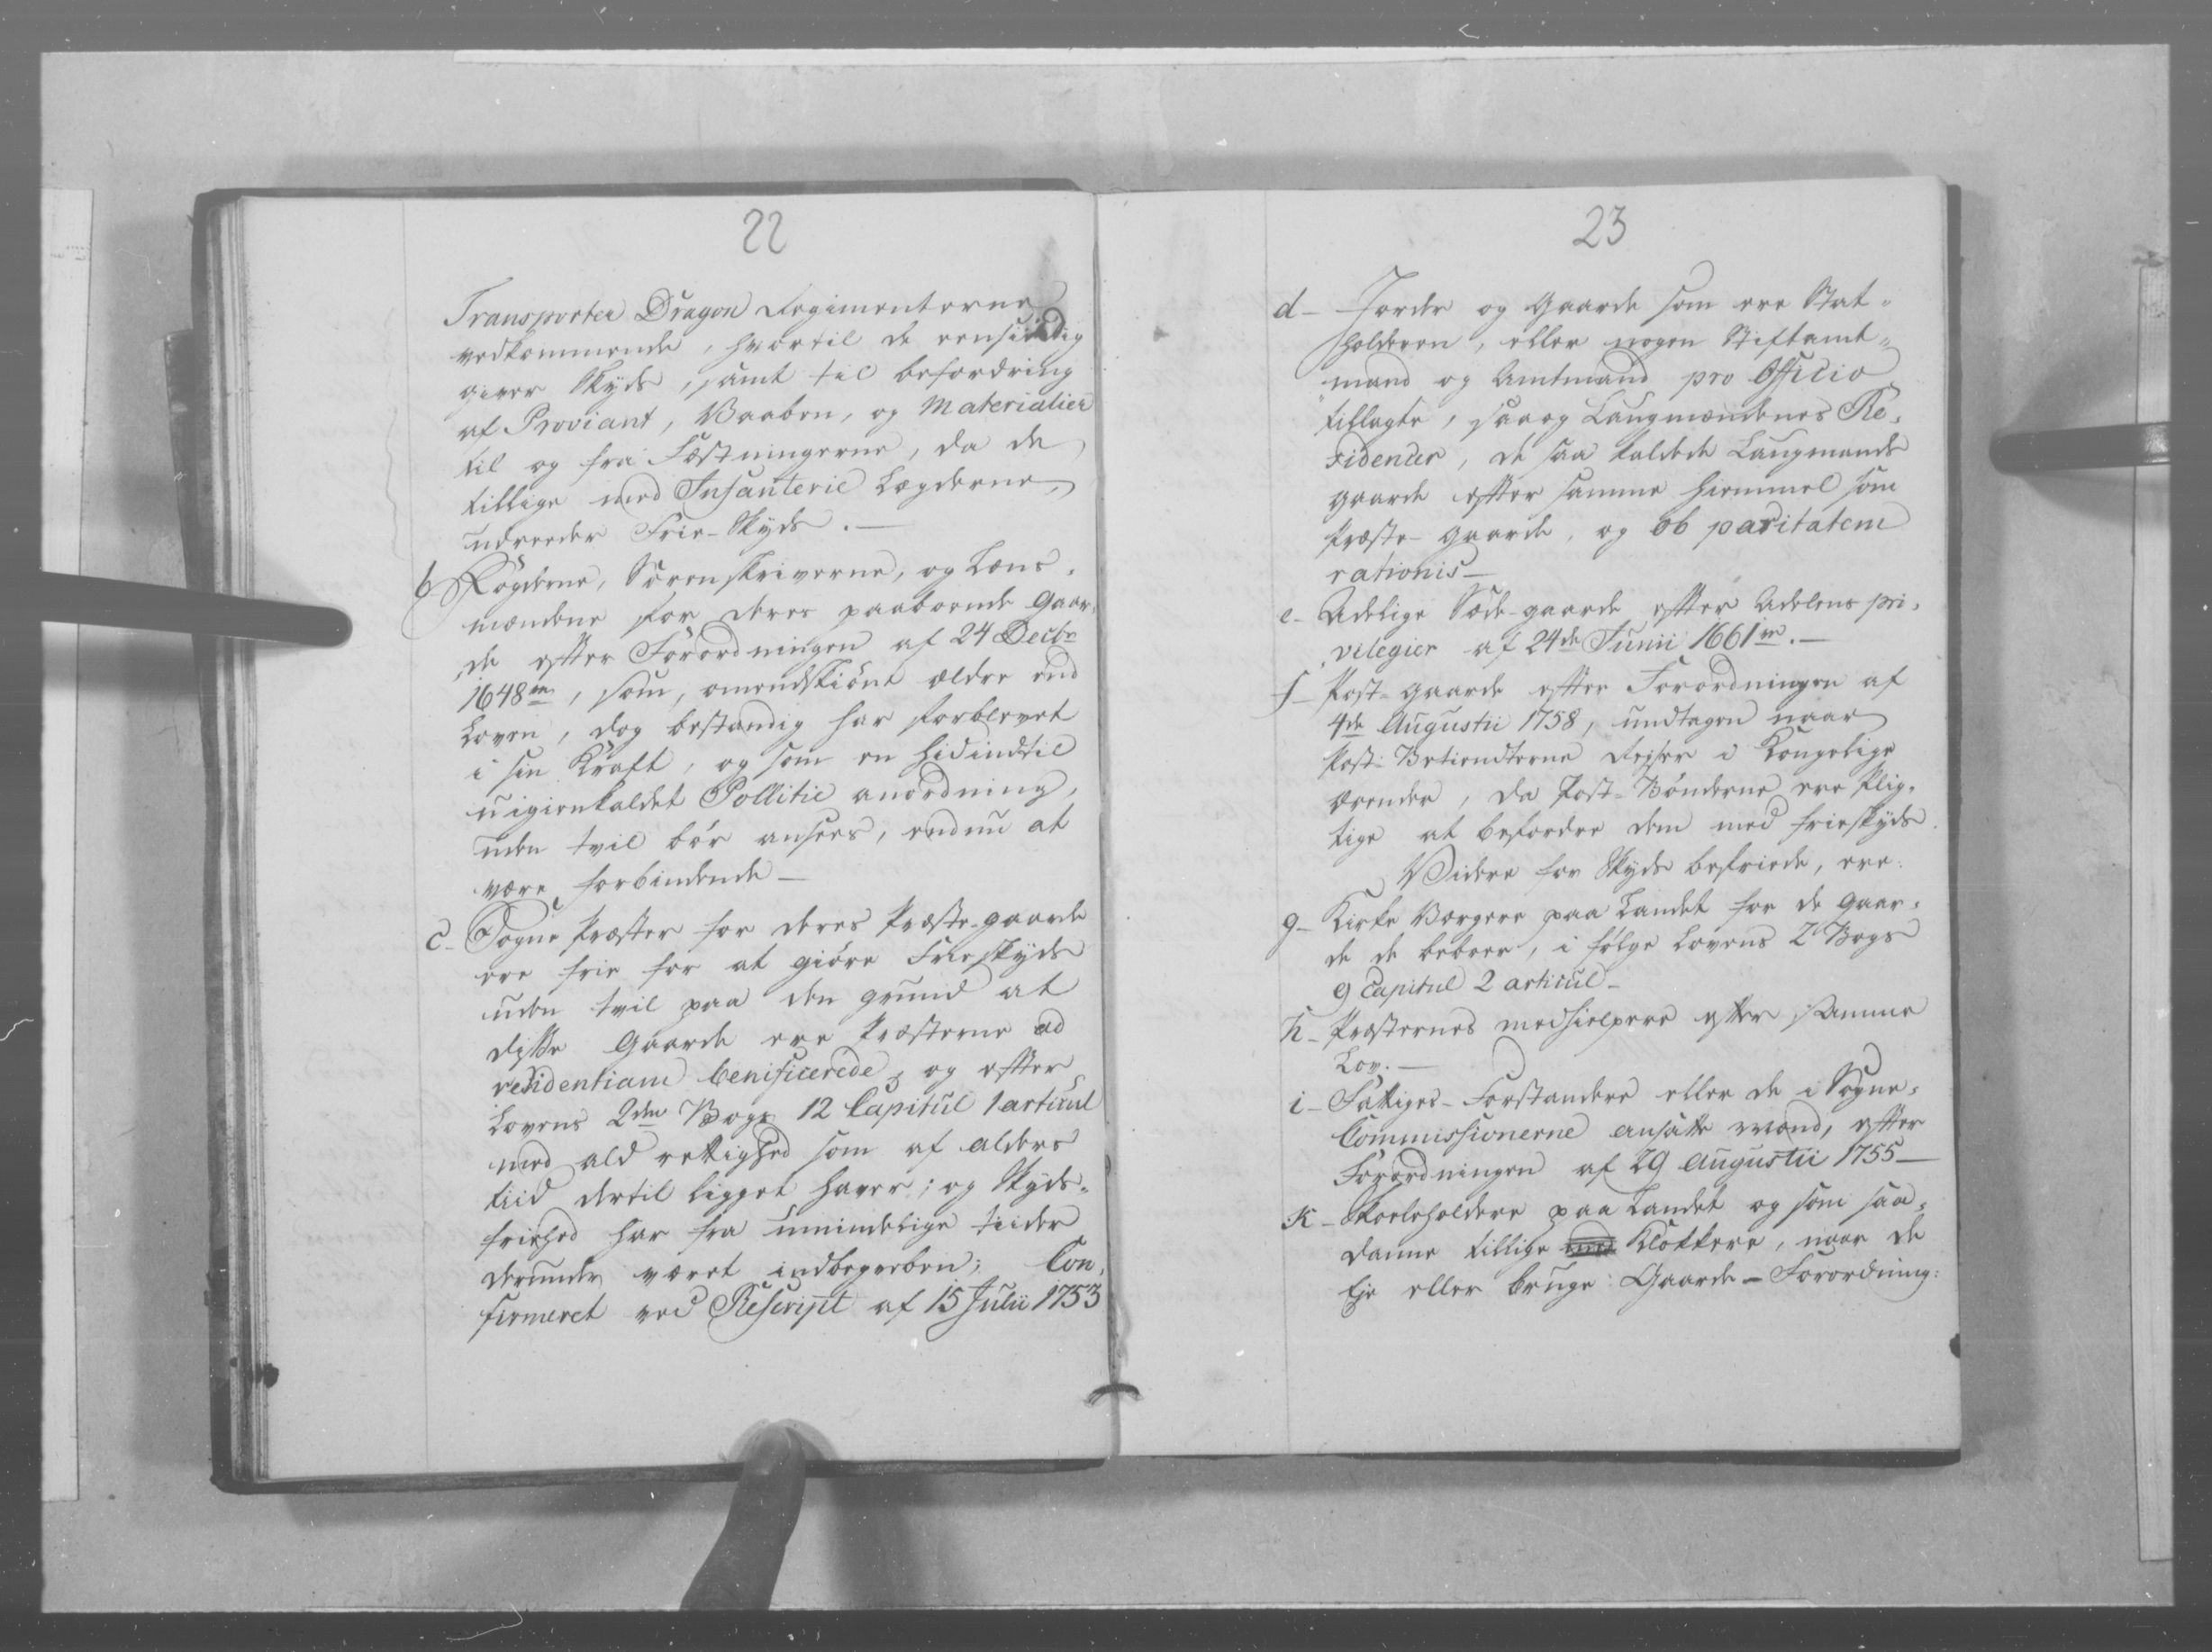 22
Transporter Dragon Regimenterne
vedkommende, hvortil de eensidig
giver Skyds, samt til befordring
af Proviant, Vaaben, og Materialier
til og fra Fæstningerne, da de
tillige med Infanterie Lægderne
udreeder Frie-Skyds.—
b Fogderne, Sorenskriverne, og Læns-
mændene for deres paaboende Gaar-
de efter Forordningen af 24 Decbr
1648 , som, omendskiönt ældre end
Loven, dog bestandig har forblevet
i sin Kraft, og som en hidindtil
uigienkaldet Pollitie anordning,
uden tvil bör ansees, endnu at
være forbindende—
c- Sogne Præster for deres Præste-gaarde
ere frie for at giöre Frieskyds
uden tvil paa den grund at
disse Gaarde ere Præsterne ad
residentiam beneficerede, og efter
Lovens 2den Bogs 12 Capitul 1 articul
med ald rettighed som af alders
tiid dertil ligget haver; og Skyds-
friehed har fra umindelige tiider
derunder været indbegreben; Con-
firmeret ved Rescript af 15 Julii 1753
23
d- Jorder og Gaarde som ere Stat-
holderen, eller nogen Stiftamt-
mand og Amtmand pro Officio
tillagte, saa og Laugmændenes Re-
sidencer, de saa kaldede Laugmands
gaarde efter samme hiemmel som
Præste-gaarde, og ob paritatem
rationis—
e- Adelige Sæde-gaarde efter Adelens pri-
vilegier af 24de Junii 1661 .—
f- Post-gaarde efter Forordningen af
4de Augustii 1758, undtagen naar
Post-Betiendterne Rejser i Kongelige
ærender, da Post-Bönderne ere Plig-
tige at befordre dem med frieskyds.
Videre for Skyds befriede, ere:
g- Kirke Værgere paa Landet for de Gaar-
de de beboer, i fölge Lovens 2 Bogs
9 Capitul 2 articul—
h- Præsternes medhielpere efter samme
Lov.—
i- Fattiges-Forstandere eller de i Sogne-
Commissionerne ansatte mænd, efter
Forordningen af 29 Augustii 1755—
K- Skoeleholdere paa Landet og som saa-
danne tillige Klokkere, naar de
Eje eller bruge Gaarde - Forordning: